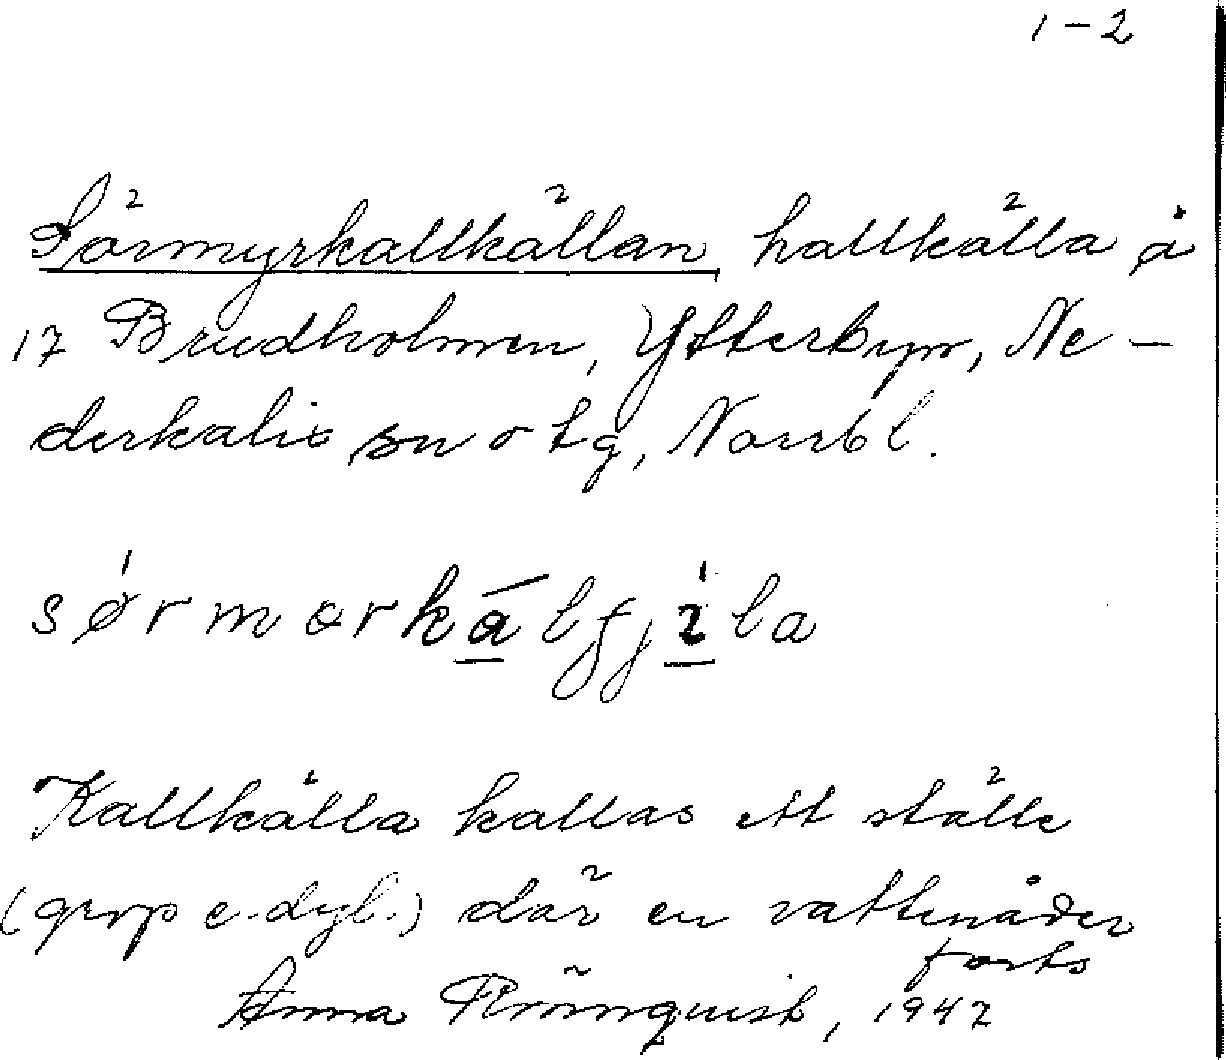 1-2
Sörmyrkallkällan, kallkälla å
17 Brudholmen, Ytterbyn, Ne-
derkalix sn o tg, Norrbl.
sørmørkálfjila
Kallkälla kallas ett ställe
(grop e.dyl.) där en vattenåder
forts
Anna Rönnquist, 1947